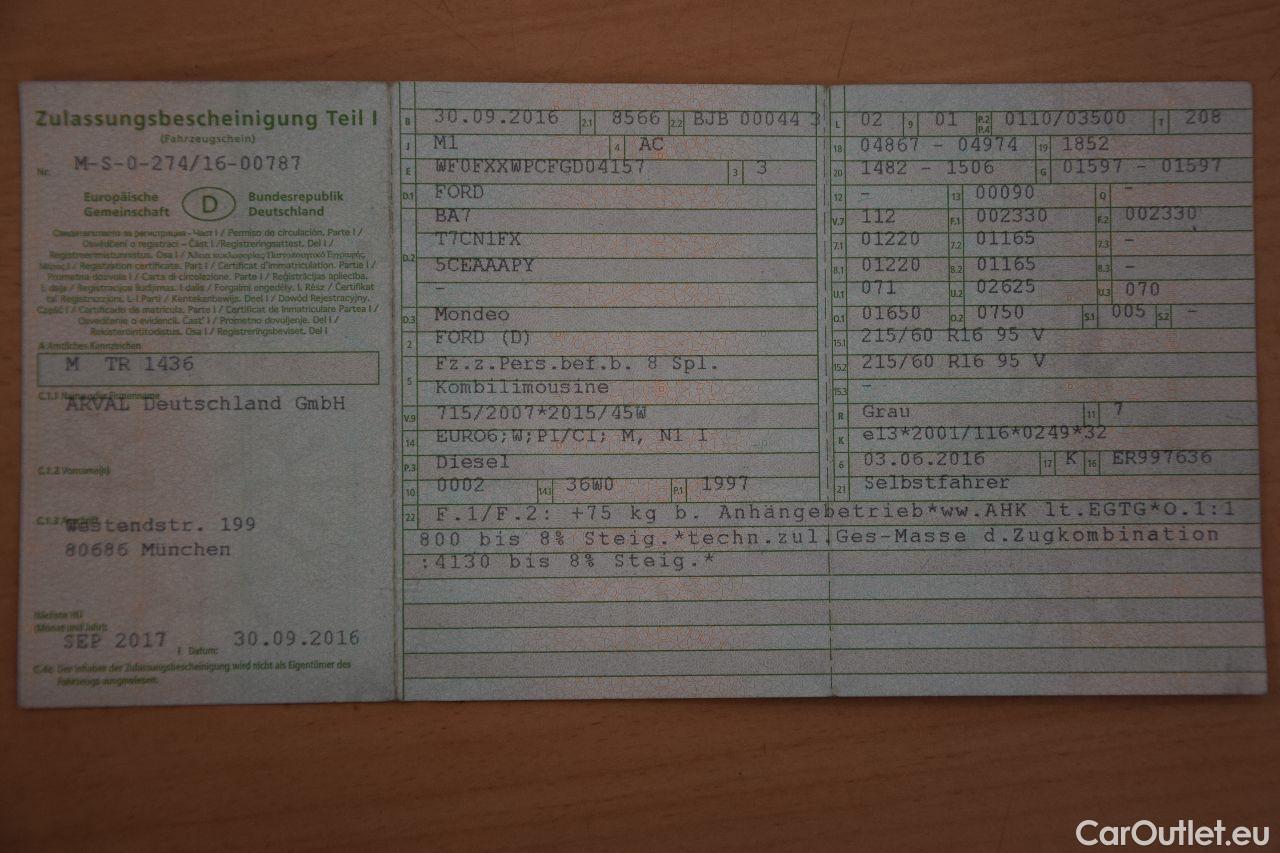 Zulassungsbescheinigung Teil I
(Fahrzeugschein)
Nr. M-S-0-274/16-00787
Europäische Gemeinschaft D Bundesrepublik Deutschland
Свидетелството за регистрация - Част I / Permiso de circulación. Parte I /
Osvědčení o registraci - Část I / Registreringsattest. Del I /
Registreerimistunnistus. Osa I / Άδεια κυκλοφορίας
Registration certificate. Part I / Certificat d'immatriculation. Partie I /
Prometna dozvola I / Carta di circolazione. Parte I / Reģistrācijas apliecība.
I. daļa / Registracijos liudijimas. I dalis / Forgalmi engedély. I. Rész / Ċertifikat
ta' Reġistrazzjoni. L-I Parti / Kentekenbewijs. Deel I / Dowód Rejestracyjny.
Część I / Certificado de matrícula. Parte I / Certificat de Inmatriculare Partea I /
Osvedčenie o evidencii. Časť I / Prometno dovoljenje. Del I /
Rekisteröintitodistus. Osa I / Registreringsbeviset. Del I
A Amtliches Kennzeichen
M TR 1436
C.1.1 Name oder Firmenname
ARVAL Deutschland GmbH
C.1.2 Vorname(n)
C.1.3 Anschrift
Westendstr. 199
80686 München
Nächste HU
(Monat und Jahr):
SEP 2017 I Datum: 30.09.2016
C.4c Der Inhaber der Zulassungsbescheinigung wird nicht als Eigentümer des
Fahrzeugs ausgewiesen.
B 30.09.2016 2.1 8566 2.2 BJB 00044 3
J M1 4 AC
E WF0FXXWPCFGD04157 3 3
D.1 FORD
BA7
D.2 T7CN1FX
5CEAAAPY
–
D.3 Mondeo
2 FORD (D)
5 Fz.z.Pers.bef.b. 8 Spl.
Kombilimousine
V.9 715/2007*2015/45W
14 EURO6;W;PI/CI; M, N1 I
P.3 Diesel
10 0002 14.1 36W0 P.1 1997
L 02 9 01 P.2 P.4 0110/03500 T 208
18 04867 - 04974 19 1852
20 1482 - 1506 G 01597 - 01597
12 – 13 00090 Q –
V.7 112 F.1 002330 F.2 002330
7.1 01220 7.2 01165 7.3 –
8.1 01220 8.2 01165 8.3 –
U.1 071 U.2 02625 U.3 070
O.1 01650 O.2 0750 S.1 005 S.2 –
15.1 215/60 R16 95 V
15.2 215/60 R16 95 V
15.3 –
R Grau 11 7
K e13*2001/116*0249*32
6 03.06.2016 17 K 16 ER997636
21 Selbstfahrer
22 F.1/F.2: +75 kg b. Anhängebetrieb*ww.AHK lt.EGTG*O.1:1
800 bis 8% Steig.*techn.zul.Ges-Masse d.Zugkombination
:4130 bis 8% Steig.*
CarOutlet.eu